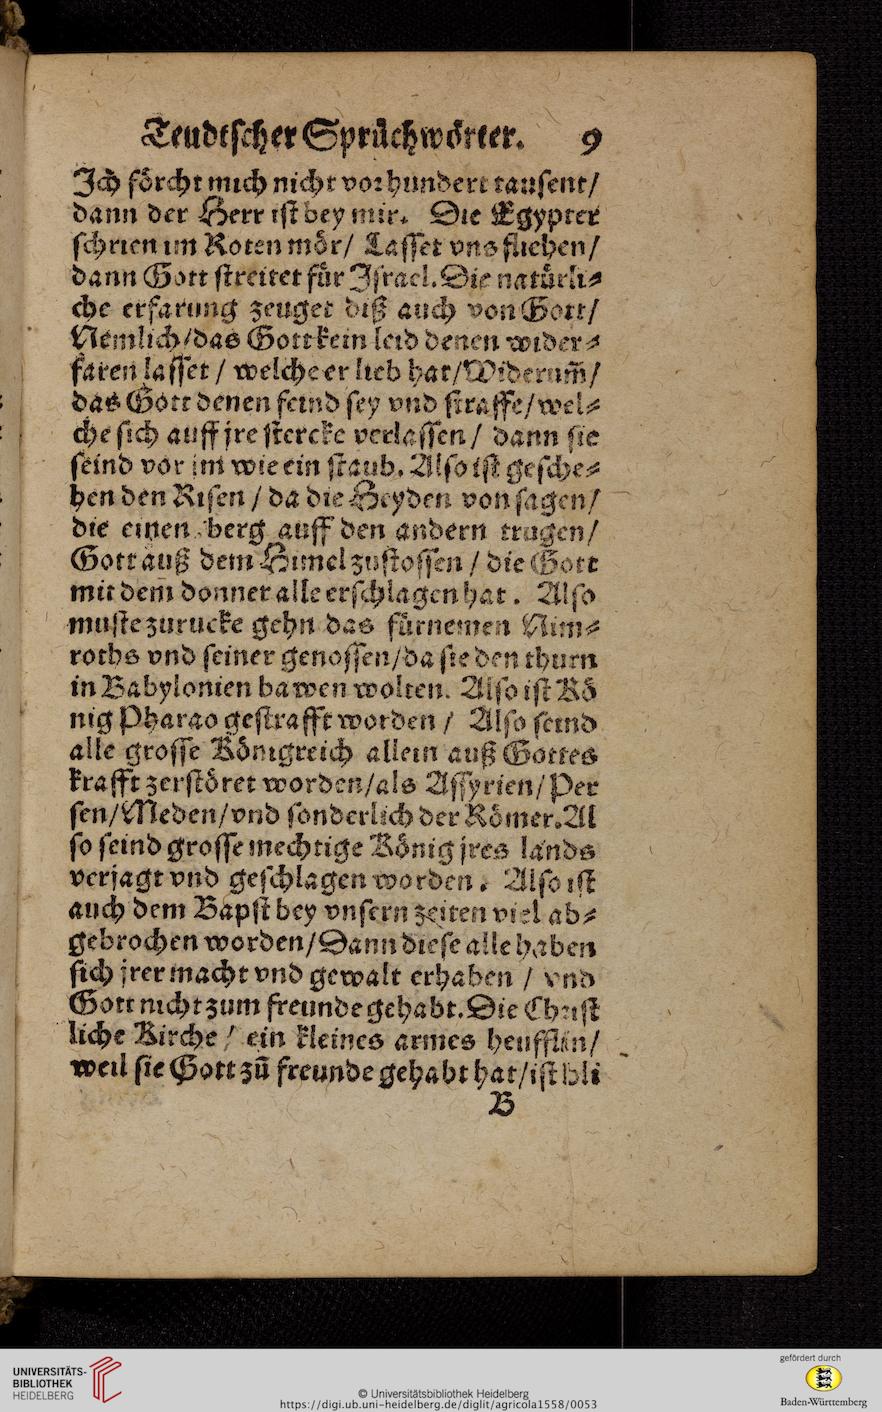 Teudtſcher Sprüchwörter. 9
Ich förcht mich nicht vor hundert tauſent/
dann der Herr iſt bey mir. Die Egypter
ſchrien im Roten mör/ Laſſet vns fliehen/
dann Gott ſtreitet für Iſrael. Die natürli⸗
che erfarung zeuget diß auch von Gott/
Nemlich/das Gott kein leid denen wider⸗
faren laſſet / welche er lieb hat/Widerum̃/
das Gott denen feind ſey vnd ſtraffe/wel⸗
che ſich auff jre ſtercke verlaſſen / dann ſie
ſeind vor im wie ein ſtaub. Alſo iſt geſche⸗
hen den Riſen / da die Heyden von ſagen/
die einen berg auff den andern trugen/
Gott auß dem Himel zuſtoſſen / die Gott
mit dem donner alle erſchlagen hat. Alſo
muſte zurucke gehn das fürnemen Nim⸗
roths vnd ſeiner genoſſen/da ſie den thurn
in Babylonien bawen wolten. Alſo iſt Kö
nig Pharao geſtrafft worden / Alſo ſeind
alle groſſe Königreich allein auß Gottes
krafft zerſtöret worden/als Aſſyrien/Per
ſen/Meden/vnd ſonderlich der Römer. Al
ſo ſeind groſſe mechtige König jres lands
verjagt vnd geſchlagen worden. Alſo iſt
auch dem Bapſt bey vnſern zeiten viel ab⸗
gebrochen worden/Dann dieſe alle haben
ſich jrer macht vnd gewalt erhaben / vnd
Gott nicht zum freunde gehabt. Die Chriſt
liche Kirche / ein kleines armes heufflin/
weil ſie Gott zů freunde gehabt hat/iſt bli
B
UNIVERSITÄTS-
BIBLIOTHEK
HEIDELBERG
© Universitätsbibliothek Heidelberg
https://digi.ub.uni-heidelberg.de/diglit/agricola1558/0053
gefördert durch
Baden-Württemberg